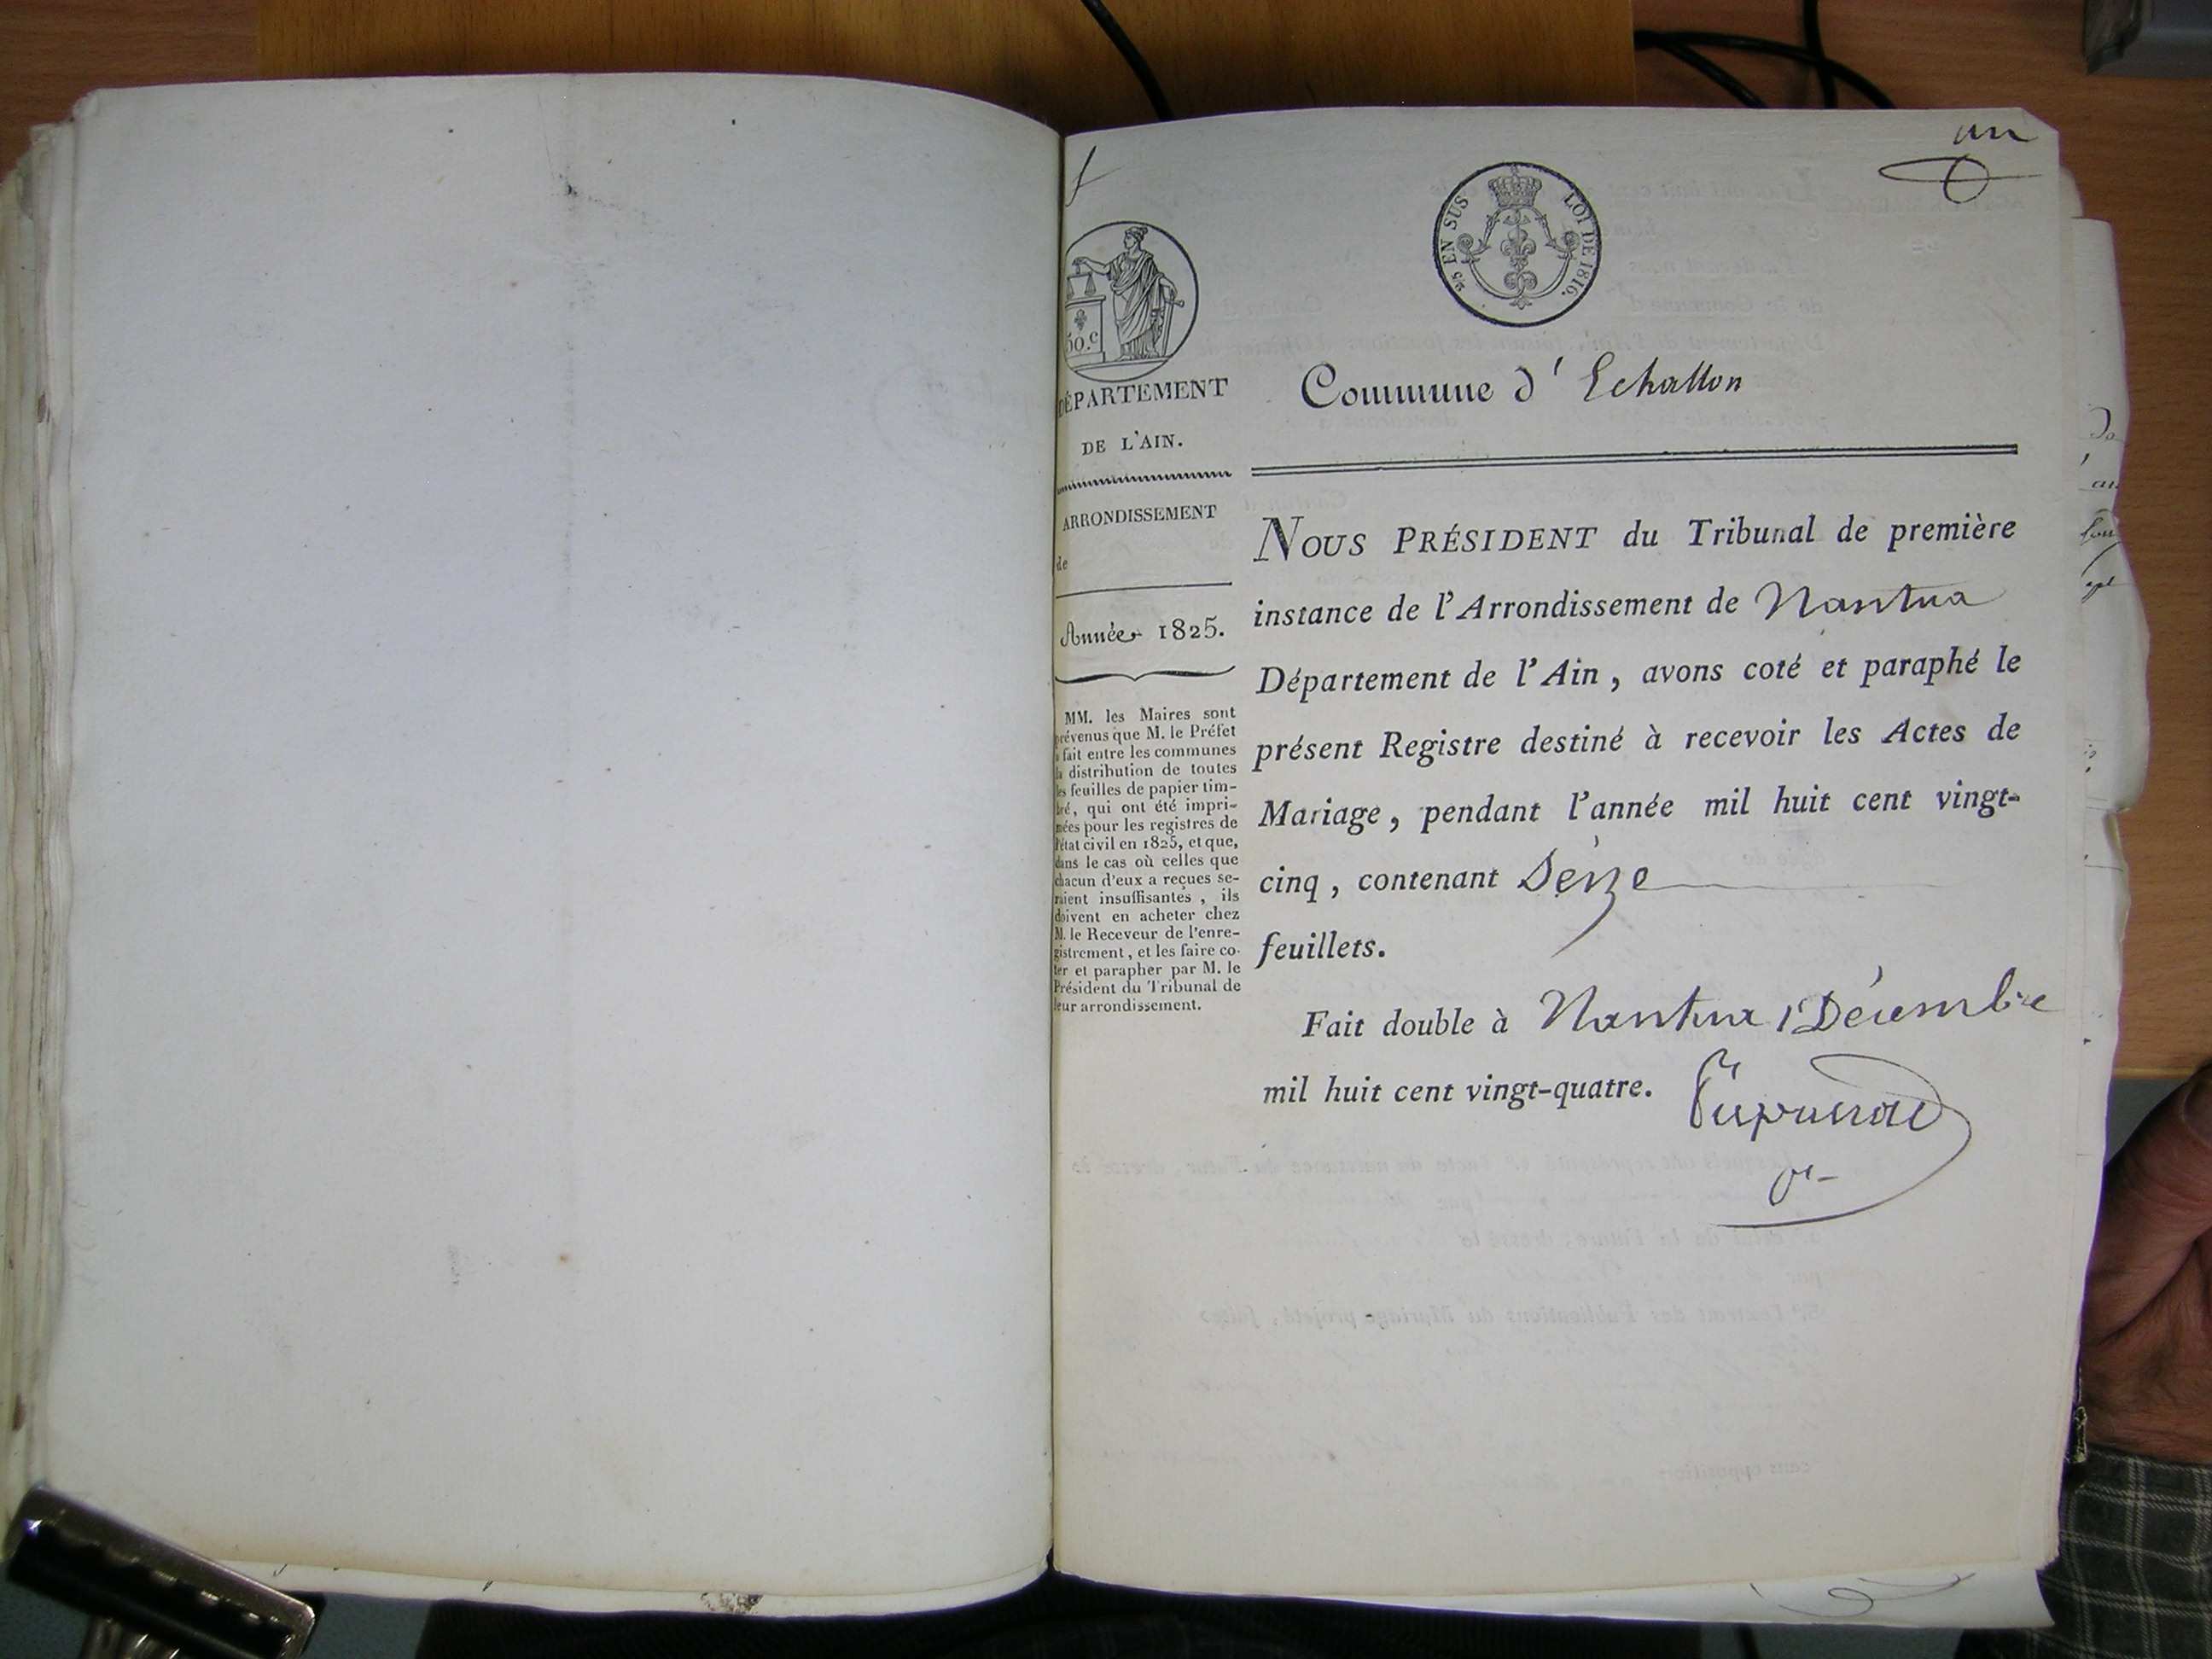 un
25 EN SUS LOI DE 1816.
50.c
DÉPARTEMENT
DE L'AIN.
ARRONDISSEMENT
de
Année 1825.
MM. les Maires sont
prévenus que M. le Préfet
a fait entre les communes
la distribution de toutes
les feuilles de papier tim-
bré, qui ont été impri-
mées pour les registres de
l'état civil en 1825, et que,
dans le cas où celles que
chacun d'eux a reçues se-
raient insuffisantes, ils
doivent en acheter chez
M. le Receveur de l'enre-
gistrement, et les faire co-
ter et parapher par M. le
Président du Tribunal de
leur arrondissement.
Commune d'Echallon
NOUS PRÉSIDENT du Tribunal de première
instance de l'Arrondissement de Nantua
Département de l'Ain, avons coté et paraphé le
présent Registre destiné à recevoir les Actes de
Mariage, pendant l'année mil huit cent vingt-
cinq, contenant Seize
feuillets.
Fait double à Nantua 1er Décembre
mil huit cent vingt-quatre.